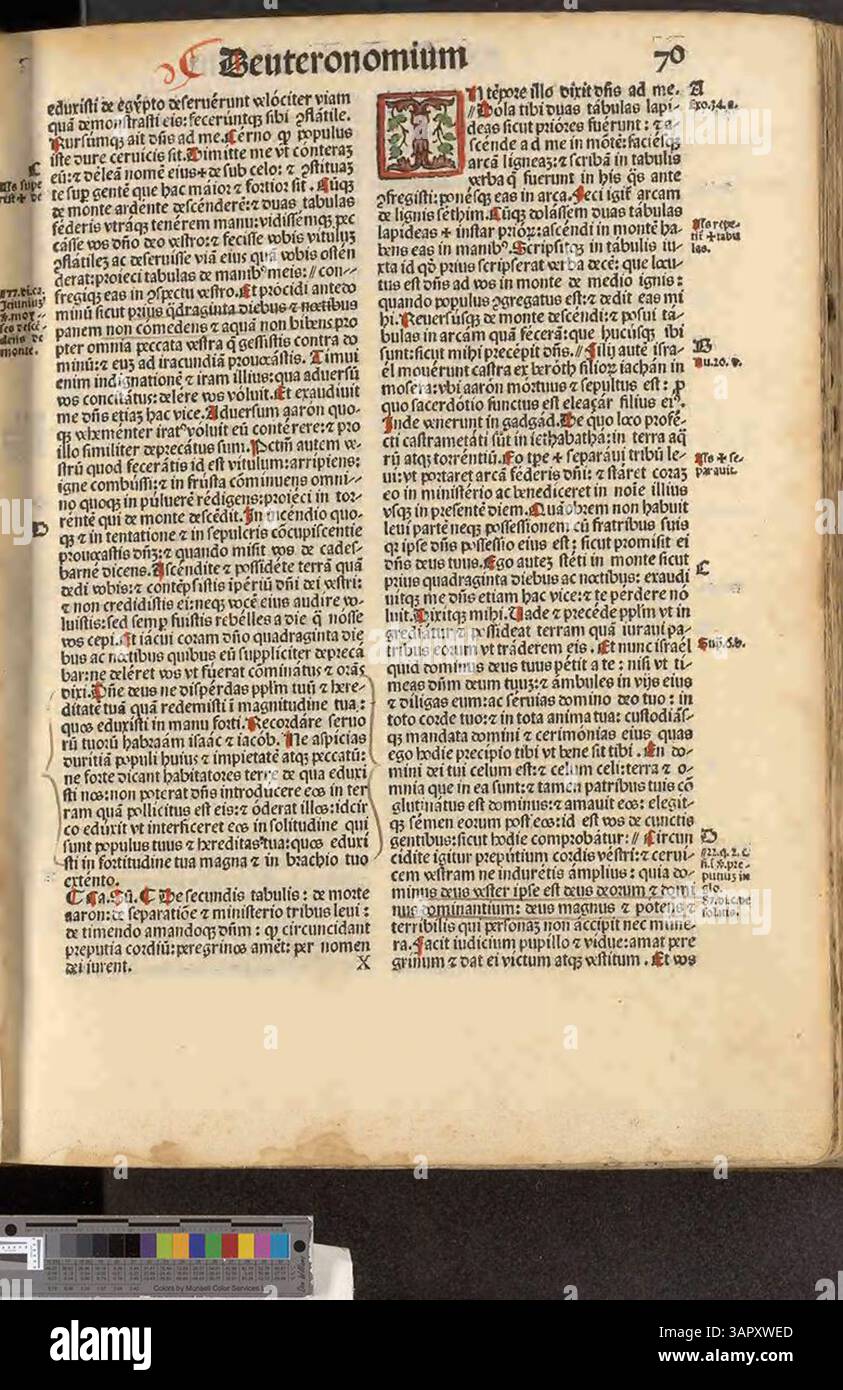 Deuteronomium
70
eduxisti de egypto deseruerunt velociter viam
quā demonstrasti eis: feceruntqꝫ sibi ꝯflatile.
Rursumqꝫ ait dn̄s ad me. Cerno ꝙ populus
iste dure ceruicis sit. Dimitte me vt conteraꝫ
eū: ⁊ deleā nomē eius + de sub celo: ⁊ ꝯstituaꝫ
te suꝑ gentē que hac maior ⁊ fortior sit. Cūqꝫ
de monte ardente descenderē: ⁊ duas tabulas
federis vtraqꝫ tenerem manu: vidissemqꝫ pec
casse vos dn̄o deo vestro: ⁊ fecisse vobis vituluꝫ
ꝯflatileꝫ ac deseruisse viā eius quā vobis osten
derat: proieci tabulas de manibꝰ meis: // con-
fregiqꝫ eas in ꝯspectu vestro. Et procidi ante do
minū sicut prius q̄draginta diebus ⁊ noctibus
panem non comedens ⁊ aquā non bibens pro
pter omnia peccata vestra q̄ gessistis contra do
minū: ⁊ euꝫ ad iracundiā prouocastis. Timui
enim indignationē ⁊ iram illius: qua aduersū
vos concitatus: delere vos voluit. Et exaudiuit
me dn̄s etiaꝫ hac vice. Aduersum aaron quo-
qꝫ vehementer iratꝰ voluit eū conterere: ⁊ pro
illo similiter deprecatus sum. Pctm̄ autem ve-
strū quod feceratis id est vitulum: arripiens:
igne combussi: ⁊ in frusta cōminuens omni-
no quoqꝫ in puluerē redigens: proieci in tor-
rentē qui de monte descēdit. In incendio quo-
qꝫ ⁊ in tentatione ⁊ in sepulcris cōcupiscentie
prouocastis dn̄ꝫ: ⁊ quando misit vos de cades-
barne dicens. Ascendite ⁊ possidete terrā quā
dedi vobis: ⁊ contēpsistis iperiū dn̄i dei vestri:
⁊ non credidistis ei: neqꝫ vocē eius audire vo-
luistis: sed semꝑ fuistis rebelles a die q̄ nosse
vos cepi. Et iacui coram dn̄o quadraginta die
bus ac noctibus quibus eū suppliciter depreca
bar: ne deleret vos vt fuerat cōminatus ⁊ orās
dixi. Dn̄e deus ne disperdas pplm̄ tuū ⁊ here-
ditatē tuā quā redemisti ī magnitudine tua:
quos eduxisti in manu forti. Recordare seruo
rū tuorū habraam isaac ⁊ iacob. Ne aspicias
duritiā populi huius ⁊ impietatē atqꝫ peccatū:
ne forte dicant habitatores terre de qua eduxi
sti nos: non poterat dn̄s introducere eos in ter
ram quā pollicitus est eis: ⁊ oderat illos: idcir
co eduxit vt interficeret eos in solitudine qui
sunt populus tuus ⁊ hereditas tua: quos eduxi
sti in fortitudine tua magna ⁊ in brachio tuo
extento.
De secundis tabulis: de morte
aaron: de separatiōe ⁊ ministerio tribus leui:
de timendo amandoqꝫ dn̄m: ꝙ circuncidant
preputia cordiū: peregrinos amēt: per nomen
dei iurent. X
IN tēpore illo dixit dn̄s ad me.
// Dola tibi duas tabulas lapi-
deas sicut priores fuerunt: ⁊ a-
scende ad me in mōtē: faciesqꝫ
arcā ligneaꝫ: ⁊ scribā in tabulis
verba q̄ fuerunt in his q̄s ante
ꝯfregisti: ponesqꝫ eas in arca. Feci igit̄ arcam
de lignis sethim. Cūqꝫ dolassem duas tabulas
lapideas + instar prioꝝ: ascendi in montē ha-
bens eas in manibꝰ. Scripsitqꝫ in tabulis iu-
xta id qd̄ prius scripserat verba decē: que locu-
tus est dn̄s ad vos in monte de medio ignis:
quando populus ꝯgregatus est: ⁊ dedit eas mi
hi. Reuersusqꝫ de monte descendi: ⁊ posui ta-
bulas in arcam quā fecerā: que hucusqꝫ ibi
sunt: sicut mihi precepit dn̄s. // Filij autē isra-
el mouerunt castra ex beroth filioꝝ iachan in
mosera: vbi aaron mortuus ⁊ sepultus est: ꝓ
quo sacerdotio functus est eleaçar filius eiꝰ.
Inde venerunt in gadgad. De quo loco profe-
cti castrametati sūt in iethabatha: in terra aq̄
rū atqꝫ torrentiū. Eo tꝑe + separaui tribū le-
ui: vt portaret arcā federis dn̄i: ⁊ staret coraꝫ
eo in ministerio ac benediceret in noīe illius
vsqꝫ in presentē diem. Quāobrem non habuit
leui partē neqꝫ possessionem cū fratribus suis
qꝛ ipse dn̄s possessio eius est: sicut promisit ei
dn̄s deus tuus. Ego auteꝫ steti in monte sicut
prius quadraginta diebus ac noctibus: exaudi
uitqꝫ me dn̄s etiam hac vice: ⁊ te perdere no
luit. Dixitqꝫ mihi. Uade ⁊ precede pplm̄ vt in
grediatur ⁊ possideat terram quā iuraui pa-
tribus eorum vt traderem eis. Et nunc israel
quid dominus deus tuus petit a te: nisi vt ti-
meas dn̄m deum tuuꝫ: ⁊ ambules in vijs eius
⁊ diligas eum: ac seruias domino deo tuo: in
toto corde tuo: ⁊ in tota anima tua: custodias-
qꝫ mandata domini ⁊ cerimonias eius quas
ego hodie precipio tibi vt bene sit tibi. En do-
mini dei tui celum est: ⁊ celum celi: terra ⁊ o-
mnia que in ea sunt: ⁊ tamen patribus tuis cō
glutinatus est dominus: ⁊ amauit eos: elegit-
qꝫ semen eorum post eos: id est vos de cunctis
gentibus: sicut hodie comprobatur: // Circun
cidite igitur preputium cordis vestri: ⁊ cerui-
cem vestram ne induretis amplius: quia do-
minus deus vester ipse est deus deorum ⁊ domi
nus dominantium: deus magnus ⁊ potens ⁊
terribilis qui personaꝫ non accipit nec mune-
ra. Facit iudicium pupillo ⁊ vidue: amat pere
grinum ⁊ dat ei victum atqꝫ vestitum. Et vos
C
D
A
Exo.34.a.
B
Nu.20.
C
D
alamy
Image ID: 3APXWED
www.alamy.com